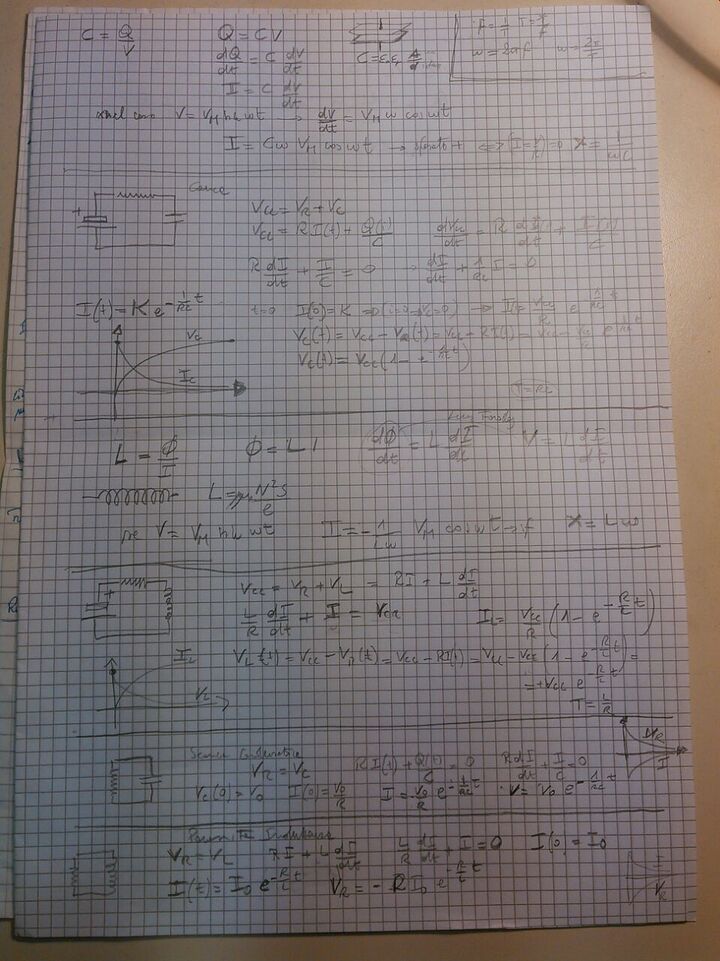 C = Q/V Q = CV f = 1/T T = 1/f
dQ/dt = C dV/dt C = ε₀εᵣ A/d ω = 2πf ω = 2π/T
I = C dV/dt
V = V_M sin ωt → dV/dt = V_M ω cos ωt
I = Cω V_M cos ωt → X = 1/ωC
Carica
V_cc = V_R + V_C
V_cc = R I(t) + Q(t)/C dV_cc/dt = R dI(t)/dt + I(t)/C
R dI/dt + I/C = 0 → dI/dt + 1/RC I = 0
I(t) = K e^(-1/RC t) t=0 I(0) = K → I = V_cc/R e^(-1/RC t)
V_C(t) = V_cc - V_R(t) = V_cc - RI(t) = V_cc - V_cc/R e^(-1/RC t)
V_C
V_C(t) = V_cc (1 - e^(-1/RC t))
I_C
T = RC
L = Φ/I Φ = LI dΦ/dt = L dI/dt V = L dI/dt
L = μ N²S/l
se V = V_M sin ωt I = -1/Lω V_M cos ωt → X = Lω
V_cc = V_R + V_L = RI + L dI/dt
L/R dI/dt + I = V_cc I_L = V_cc/R (1 - e^(-R/L t))
I_L V_L(t) = V_cc - V_R(t) = V_cc - RI(t) = V_cc - V_cc (1 - e^(-R/L t)) =
= +V_cc e^(-R/L t)
V_L
T = L/R
V_R
V_R = V_C R I(t) + Q(t)/C = 0 R dI/dt + I/C = 0 I
V_C(0) = V_0 I(0) = V_0/R I = V_0/R e^(-1/RC t) V = V_0 e^(-1/RC t)
V_R = V_L RI + L dI/dt L/R dI/dt + I = 0 I(0) = I_0 I
I(t) = I_0 e^(-R/L t) V_R = - R I_0 e^(-R/L t) V_R